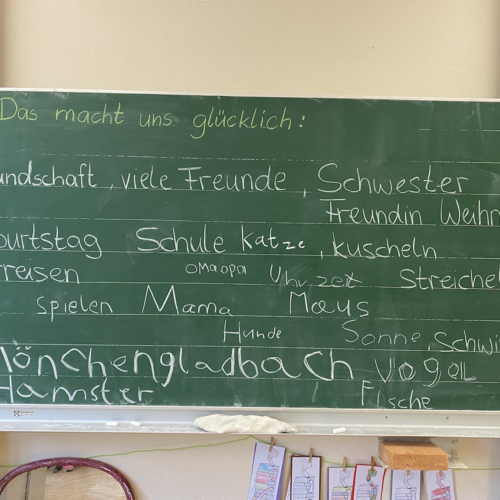 Das macht uns glücklich:
undschaft, viele Freunde, Schwester
Freundin Weihn
burtstag Schule Katze, kuscheln
reisen omaopa Uhrzeit Streichel
spielen Mama Maus
Hunde Sonne, Schwi
Mönchengladbach Vogel
Hamster Fische